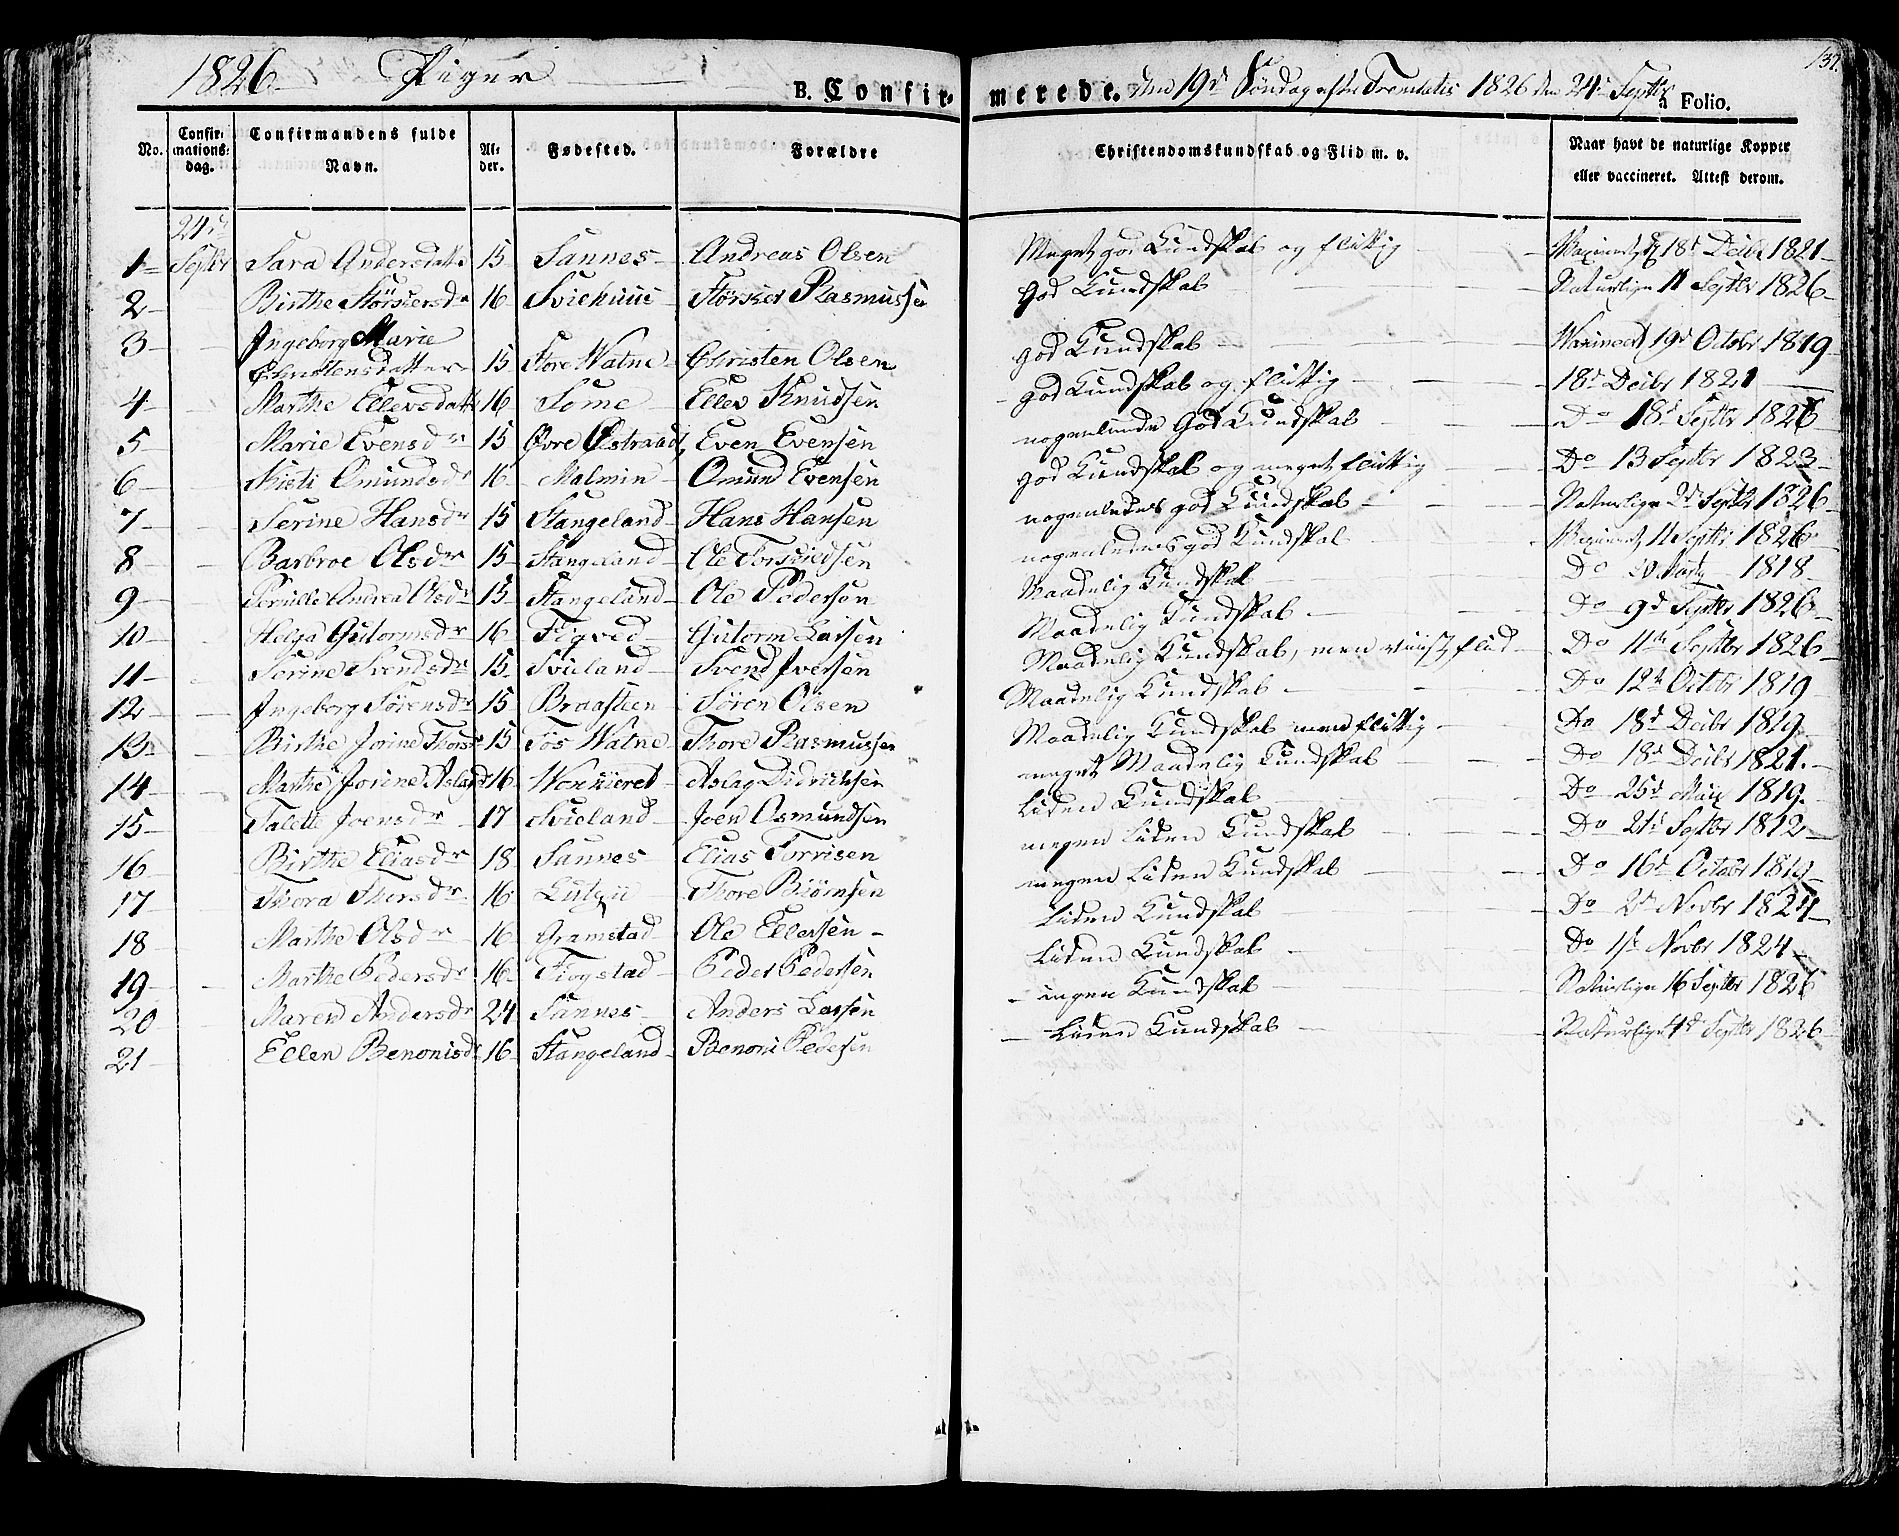 1826 Piger B. Confir- merede. den 19d Søndag efter Trenitatis 1826 den 24 Septbr Folio. 137.
No. Confir-mations-dag. Confirmandens fulde Navn. Al-der. Fødested. Forældre Christendomskundskab og Flid m. v. Naar havt de naturlige Kopper eller vaccineret. Attest derom.
24de
1 Septbr Sara Andersdatter 15 Sannes Andreas Olsen Meget god Kundskab og flittig 18d Decbr 1821
2 Birthe 16 Rasmussen God Kundskab Naturlige 11 Septbr 1826
3 Ingeborg Marie
Christensdatter 15 Store Watne Christen Olsen god Kundskab Waxineret 19d Octobr 1819
4 Marthe Ellevsdatter 16 Some Ellev Knudsen god Kundskab og flittig 18d Decbr 1821
5 Marie Evensdr 15 Øvre Østraad Even Evensen nogenlunde God Kundskab Do 18d Septbr 1826
6 Omundsdr 16 Malmin Omund Evensen god Kundskab og meget flittig Do 13 Septbr 1823
7 Serine Hansdr 15 Stangeland Hans Hansen nogenledes god Kundskab Naturlige 2d Septbr 1826
8 Barbroe Olsdr 15 Stangeland Ole nogenledes god Kundskab 11 Septbr 1826
9 Pernille Andrea Olsdr 15 Stangeland Ole Pedersen Maadelig Kundskab Do 1818
10 Helga Gutormsdr 16 Figved Gutorm Larsen Maadelig Kundskab Do 9d Septbr 1826
11 Serine Svendsdr 15 Svieland Svend Iversen Maadelig Kundskab, men flid Do 11te Septbr 1826
12 Ingeborg Sørensdr 15 Braasteen Søren Olsen Maadelig Kundskab Do 12te Octobr 1819
13 Birthe Jorine Thorsdr 15 Tøs Watne Thore Rasmussen Maadelig Kundskab men flittig Do 18d Decbr 1819
14 Marthe Jorine 16 Aslag Didrichsen meget Maadelig Kundskab Do 18d Decbr 1821
15 Talette Joensdr 17 Svieland Joen Osmundsen Liden Kundskab Do 25d 1819
16 Birthe Eliasdr 18 Sannes Elias Torrisen megen liden Kundskab Do 21d Septbr 1812
17 Thora Thorsdr 16 Thore Biørnsen megen Liden Kundskab Do 16d Octobr 1819
18 Marthe Olsdr 16 Gramstad Ole Ellefsen Liden Kundskab Do 2d Novbr 1824
19 Marthe Pedersdr 16 Fiogstad Peder Pedersen Liden Kundskab Do 1ste Novbr 1824
20 Maren Andersdr 24 Sannes Anders Larsen ingen Kundskab Naturlige 16 Septbr 1826
21 Ellen Benonisdr 16 Stangeland Benoni Pedersen Liden Kundskab Naturlige 1d Septbr 1826